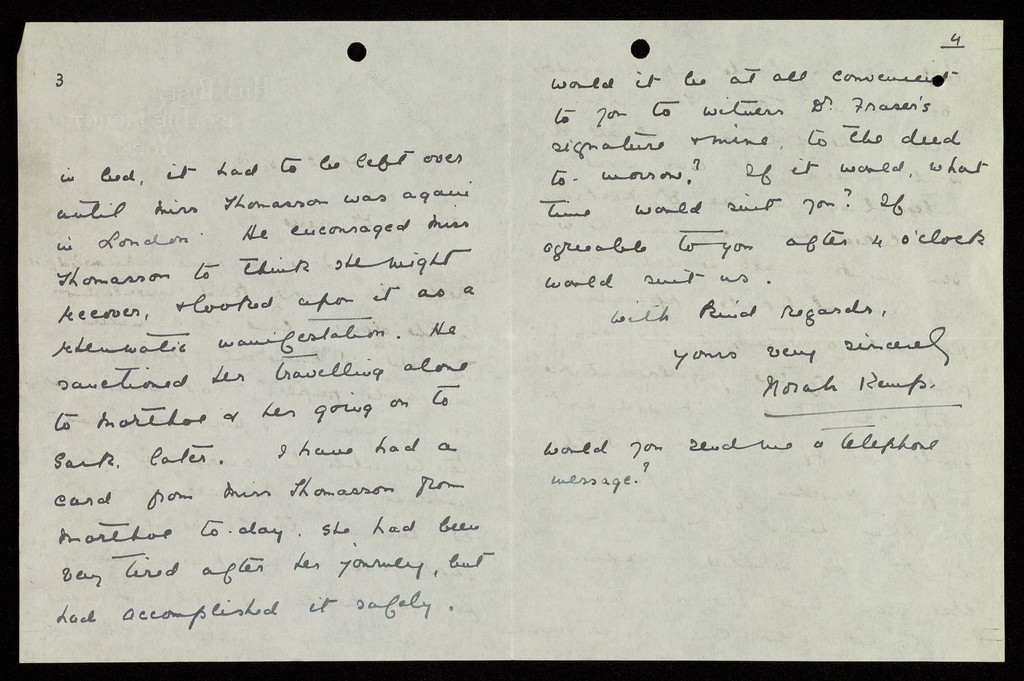 3
in bed, it had to be left over
until Miss Thomasson was again
in London. He encouraged Miss
Thomasson to think she might
recover, & looked upon it as a
rheumatic manifestation. He
sanctioned her travelling alone
to Morthoe & her going on to
Sark, later. I have had a
card from Miss Thomasson from
Morthoe to-day. She had been
very tired after her journey, but
had accomplished it safely.
4
would it be at all convenient
to you to witness Dr. Fraser's
signature & mine, to the deed
to-morrow? If it would, what
time would suit you? If
agreeable to you after 4 o'clock
would suit us.
With kind regards,
Yours very sincerely
Norah Kemp.
Would you send me a telephone
message?